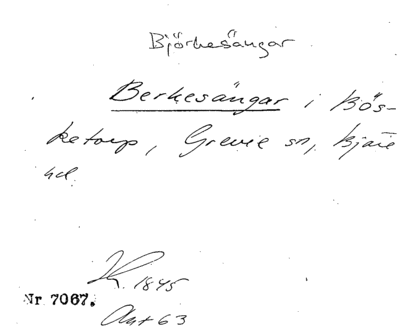 Björkesängar
Berkesängar i Bös-
ketorp, Grevie sn, Bjäre
hd.
K. 1845
Nr 7067.
Akt 63